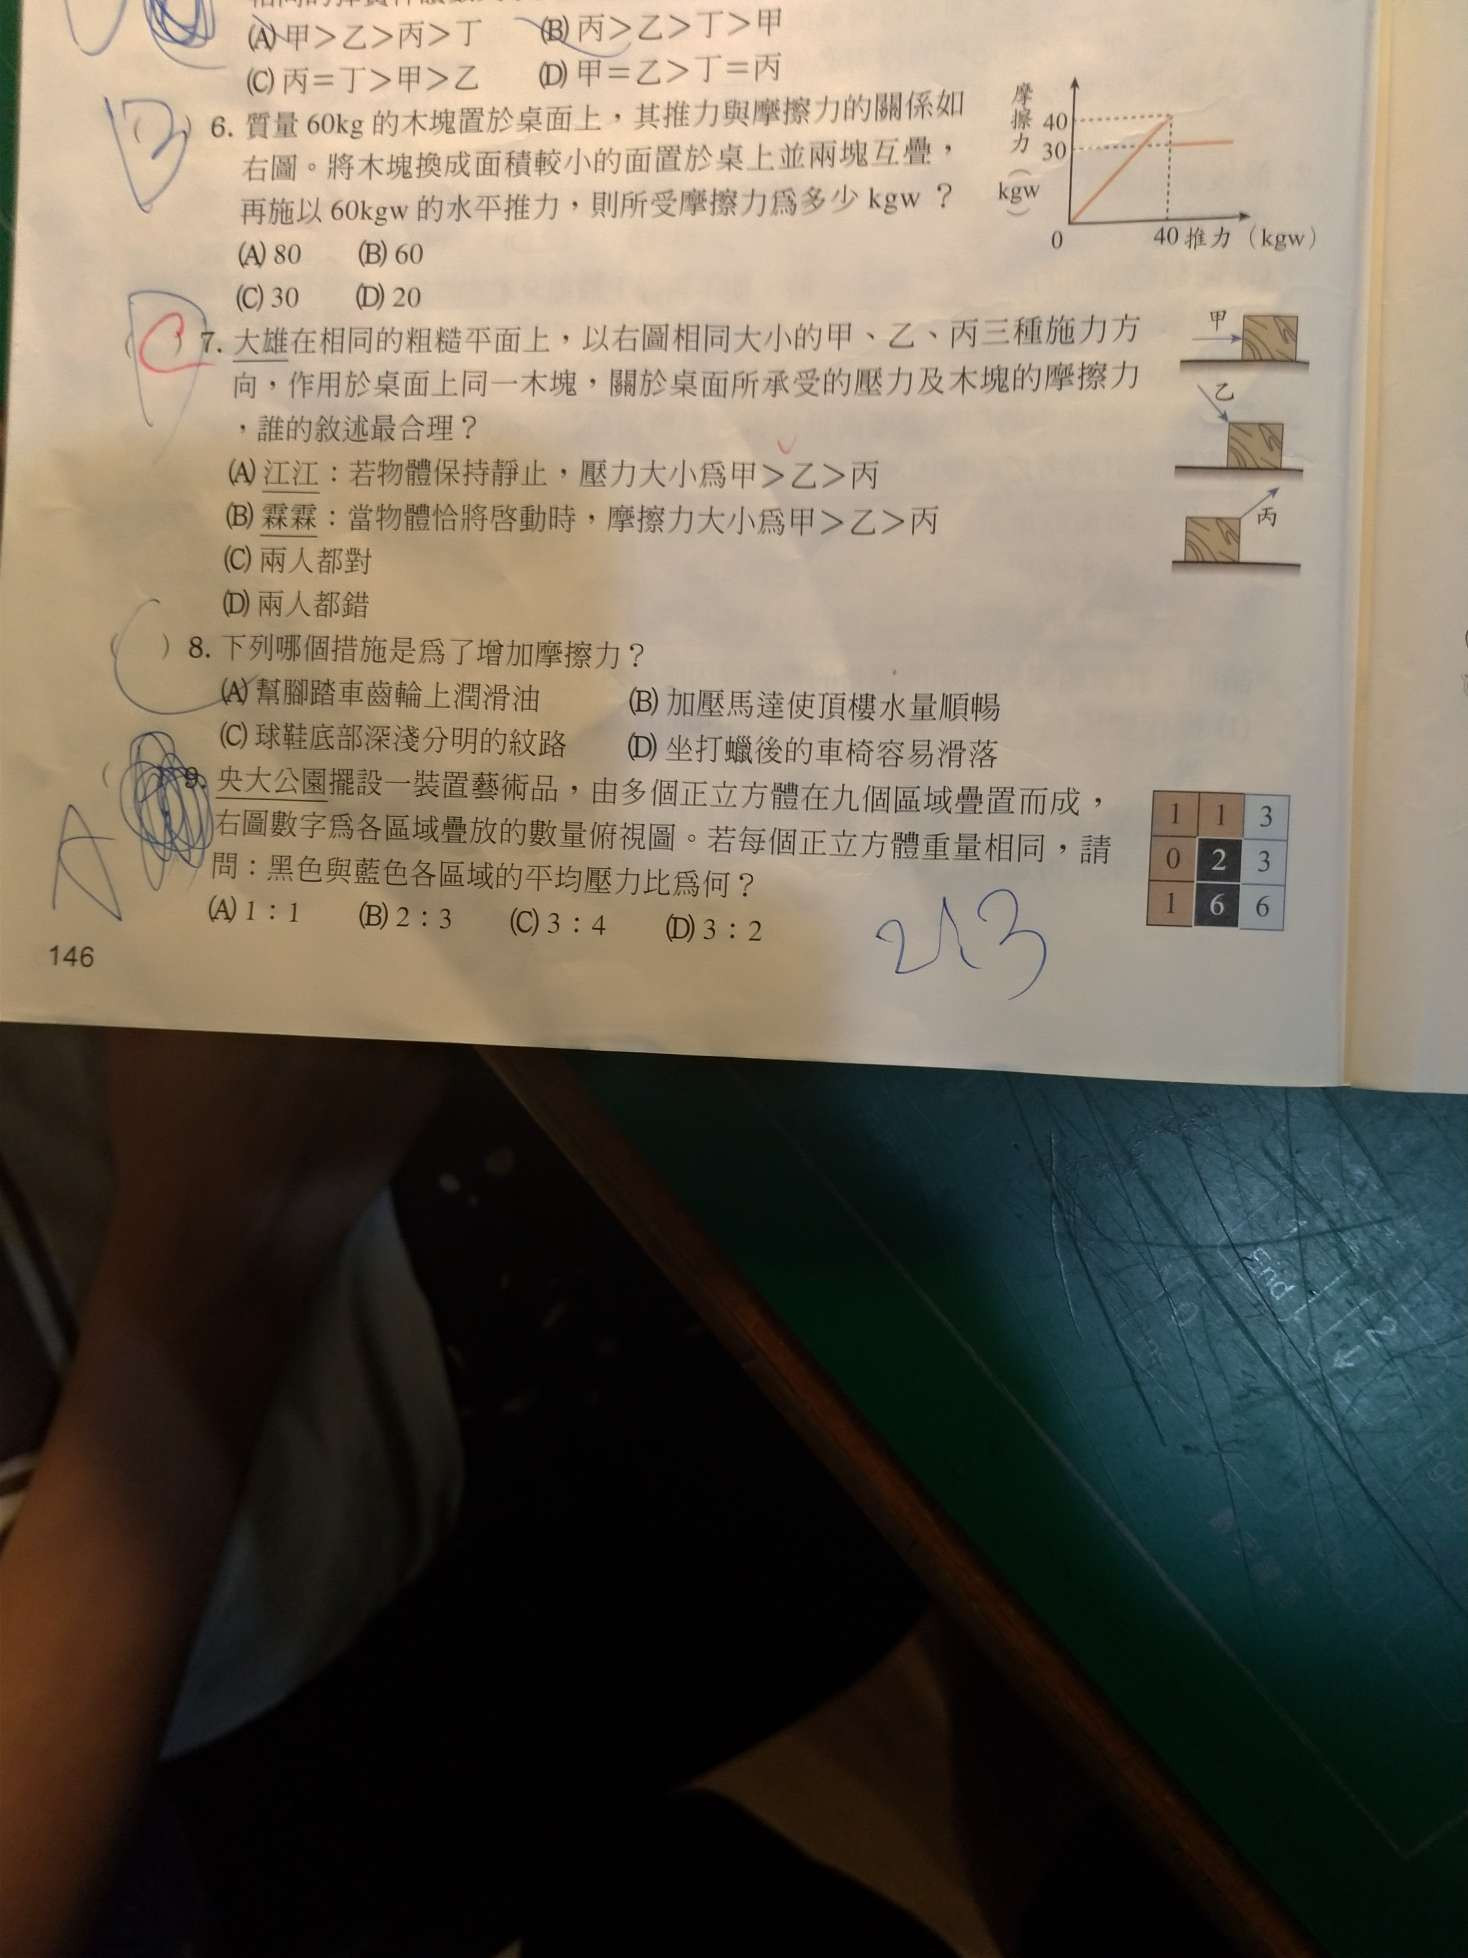 (A) 甲>乙>丙>丁 (B) 丙>乙>丁>甲
(C) 丙=丁>甲>乙 (D) 甲=乙>丁=丙
B
( ) 6. 質量 60kg 的木塊置於桌面上，其推力與摩擦力的關係如
右圖。將木塊換成面積較小的面置於桌上並兩塊互疊，
再施以 60kgw 的水平推力，則所受摩擦力爲多少 kgw ？
(A) 80 (B) 60
(C) 30 (D) 20
摩擦力(kgw)
40
30
0 40 推力 (kgw)
C
( ) 7. 大雄在相同的粗糙平面上，以右圖相同大小的甲、乙、丙三種施力方
向，作用於桌面上同一木塊，關於桌面所承受的壓力及木塊的摩擦力
，誰的敘述最合理？
(A) 江江：若物體保持靜止，壓力大小爲甲>乙>丙
(B) 霖霖：當物體恰將啓動時，摩擦力大小爲甲>乙>丙
(C) 兩人都對
(D) 兩人都錯
甲
乙
丙
C
( ) 8. 下列哪個措施是爲了增加摩擦力？
(A) 幫腳踏車齒輪上潤滑油 (B) 加壓馬達使頂樓水量順暢
(C) 球鞋底部深淺分明的紋路 (D) 坐打蠟後的車椅容易滑落
A
( 9. 央大公園擺設一裝置藝術品，由多個正立方體在九個區域疊置而成，
右圖數字爲各區域疊放的數量俯視圖。若每個正立方體重量相同，請
問：黑色與藍色各區域的平均壓力比爲何？
(A) 1：1 (B) 2：3 (C) 3：4 (D) 3：2
1 1 3
0 2 3
1 6 6
146
End
2